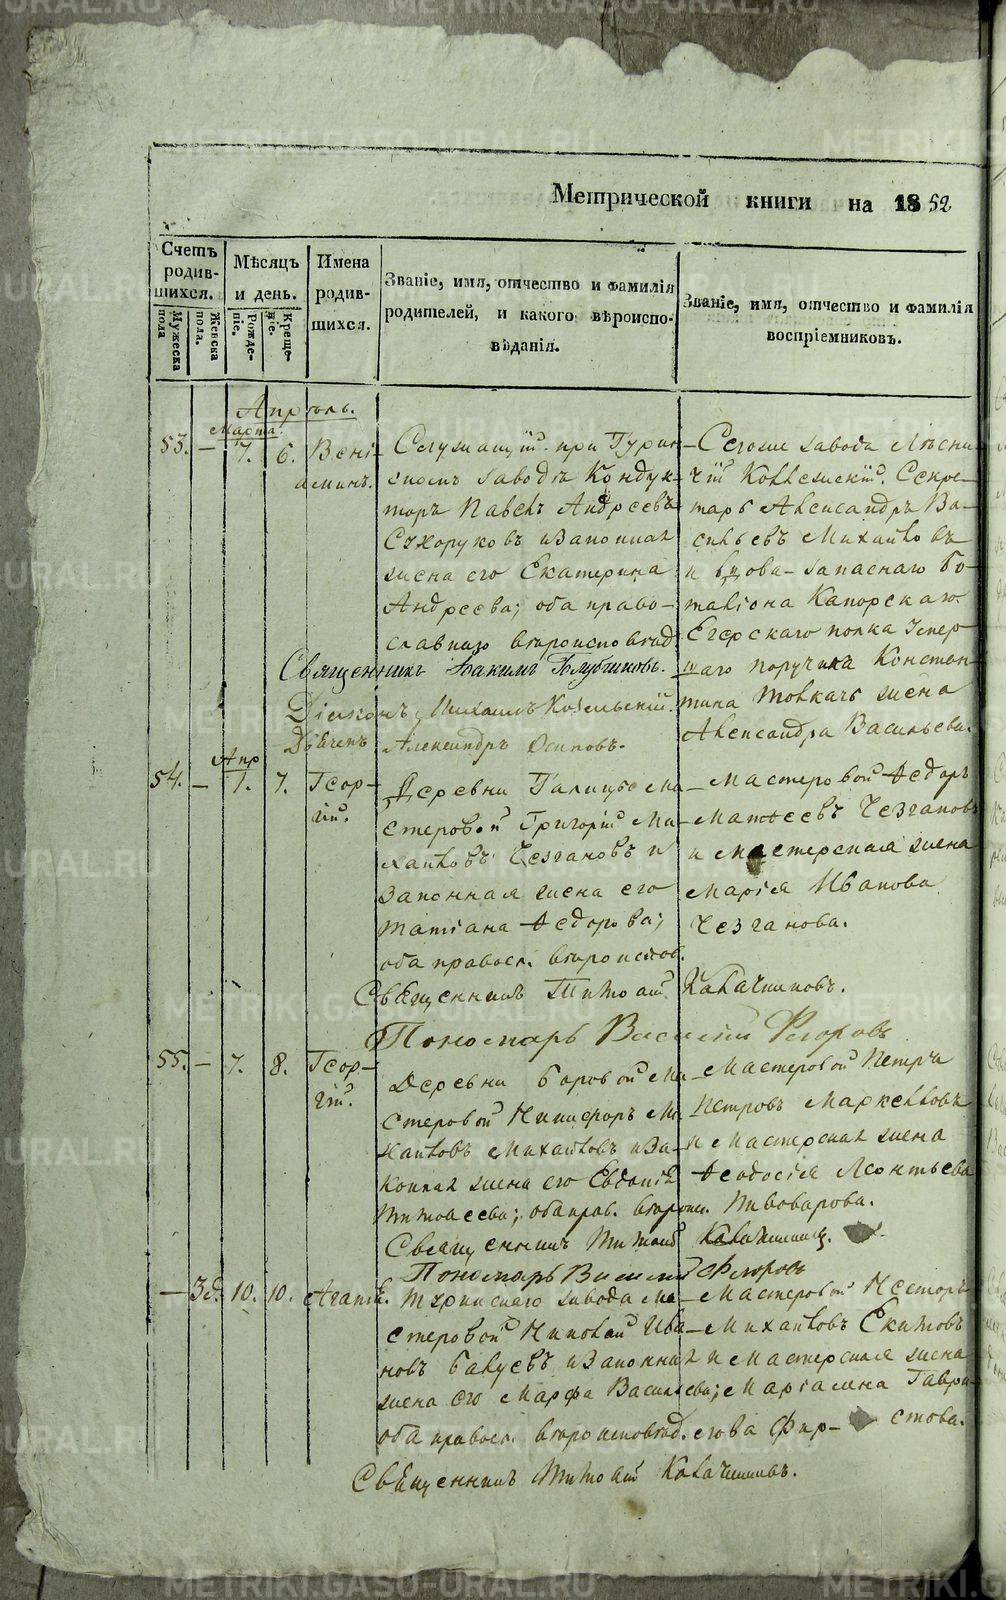 Метрической книги на 1852
Счетъ родив-шихся.
Мѣсяцъ и день.
Имена родив-шихся.
Званіе, имя, отчество и фамилія родителей, и какого вѣроиспо-вѣданія.
Званіе, имя, отчество и фамилія воспріемниковъ.
Мужеска пола
Женска пола.
Рожде-ніе.
Креще-ніе.
Апрѣль.
Марта
53. — 7. 6. Вені-
аминъ.
Служащій при Турин-
скомъ заводѣ Кондук-
торъ Павелъ Андреевъ
Сухоруковъ и законная
жена его Екатерина
Андреева; оба право-
славнаго вѣроисповѣд.
Сегоже завода Лѣсни-
чій Коллежскій Секре-
тарь Александръ Ва-
сильевъ Михайловъ
и вдова запаснаго ба-
таліона Капорскаго
Егерскаго полка Умер-
шаго поручика Констан-
тина Товкачь жена
Александра Васильева.
Священникъ Іоакимъ
Діаконъ Михаилъ
Дьячекъ Александръ Осиповъ.
Апр
54. — 1. 7. Геор-
гій.
Деревни Ма-
стеровой Григорій Ми-
хайловъ Чезгановъ и
законная жена его
Татіана Федорова;
оба правосл. вѣроиспов.
Мастеровой Федоръ
Матвеевъ Чезгановъ
и мастерская жена
Марія Иванова
Чезганова.
Священникъ Тимофей Калачниковъ.
Пономарь Василій Флоровъ
55. — 7. 8. Геор-
гій.
Деревни Боровой Ма-
стеровой Никифоръ Ми-
хайловъ Михайловъ и за-
конная жена его Евдокія
Тимофеева; оба прав. вѣроис.
Мастеровой Петръ
Петровъ Маркелловъ
и мастерская жена
Феодосія Леонтьева
Пивоварова.
Священникъ Тимофей Калачниковъ.
Пономарь Василій Флоровъ
— 3д. 10. 10. Агапія.
Туринскаго завода ма-
стеровой Николай Ива-
новъ и законная
жена его Марфа Васильева;
оба правосл. вѣроисповѣд.
Мастеровой Несторъ
Михайловъ Екимовъ
и мастерская жена
Маріамна Гаври-
лова Фир-стова.
Священникъ Тимофей Калачниковъ.
METRIKI.GASO-URAL.RU